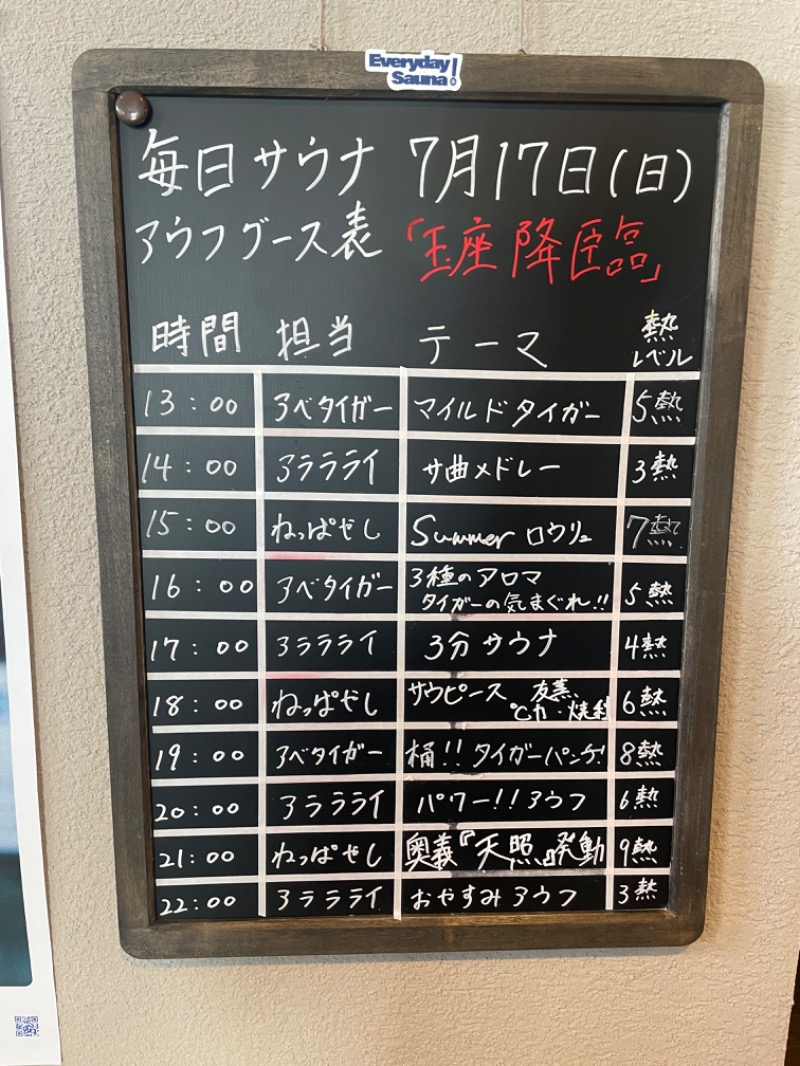 Everyday
Sauna!
毎日サウナ 7月17日(日)
アウフグース表 「玉座降臨」
時間 担当 テーマ 熱レベル
13:00 アベタイガー マイルドタイガー 5熱
14:00 アラララライ サ曲メドレー 3熱
15:00 ねっぱぜし Summer ロウリュ 7熱
16:00 アベタイガー 3種のアロマ
タイガーの気まぐれ!! 5熱
17:00 アラララライ 3分サウナ 4熱
18:00 ねっぱぜし サウピース 友蒸
℃力・焼 6熱
19:00 アベタイガー 桶!! タイガーパンゲ! 8熱
20:00 アラララライ パワー!!アウフ 6熱
21:00 ねっぱぜし 奥義『天照』発動 9熱
22:00 アラララライ おやすみアウフ 3熱